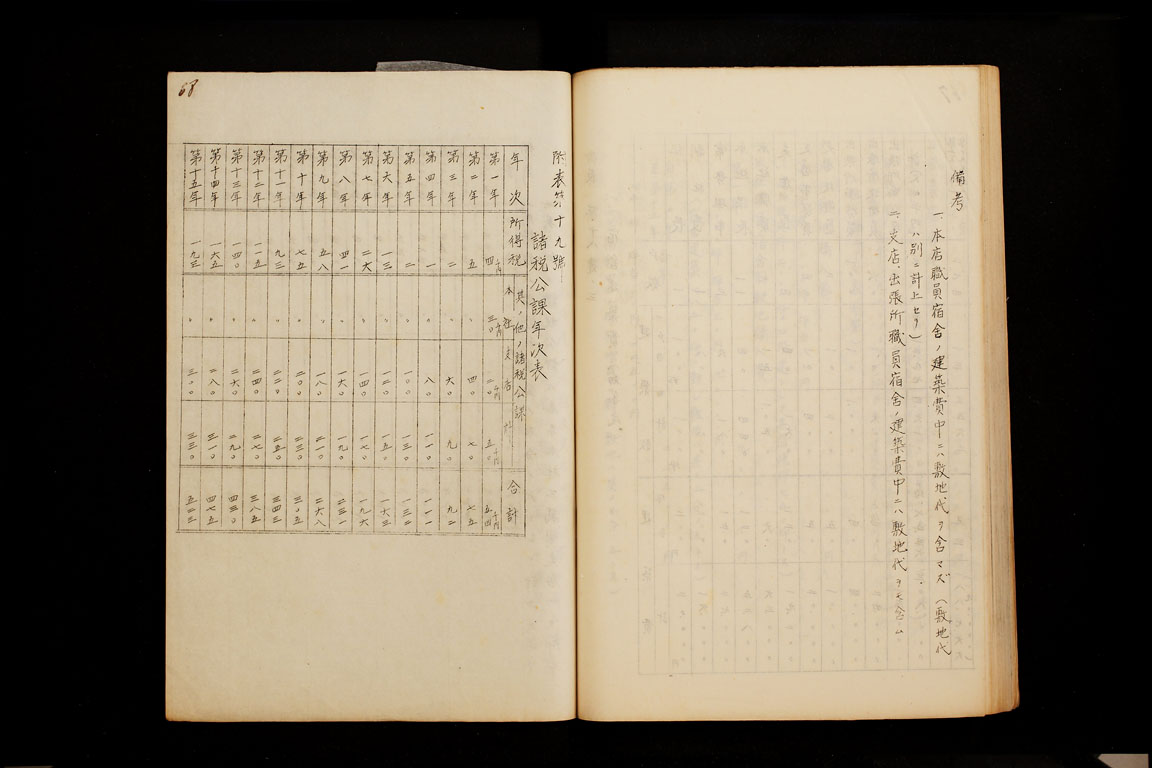 備考
一、本店職員宿舍ノ建築費中ニハ敷地代ヲ含マズ(敷地代
ハ別ニ計上セリ)
二、支店、出張所職員宿舍ノ建築費中ニハ敷地代ヲモ含ム
68
附表第十九號
諸税公課年次表
年次 所得税 其ノ他ノ諸税公課 本社 支店 計 合計
第一年 四千円 三〇千円 二〇千円 五〇千円 五四千円
第二年 五 〃 四〇 七〇 七五
第三年 二 〃 六〇 九〇 九二
第四年 一 〃 八〇 一一〇 一一一
第五年 二 〃 一〇〇 一三〇 一三二
第六年 一三 〃 一二〇 一五〇 一六三
第七年 二六 〃 一四〇 一七〇 一九六
第八年 四一 〃 一六〇 一九〇 二三一
第九年 五八 〃 一八〇 二一〇 二六八
第十年 七五 〃 二〇〇 二三〇 三〇五
第十一年 九三 〃 二二〇 二五〇 三四三
第十二年 一一五 〃 二四〇 二七〇 三八五
第十三年 一四〇 〃 二六〇 二九〇 四三〇
第十四年 一六五 〃 二八〇 三一〇 四七五
第十五年 一九三 〃 三〇〇 三三〇 五二三